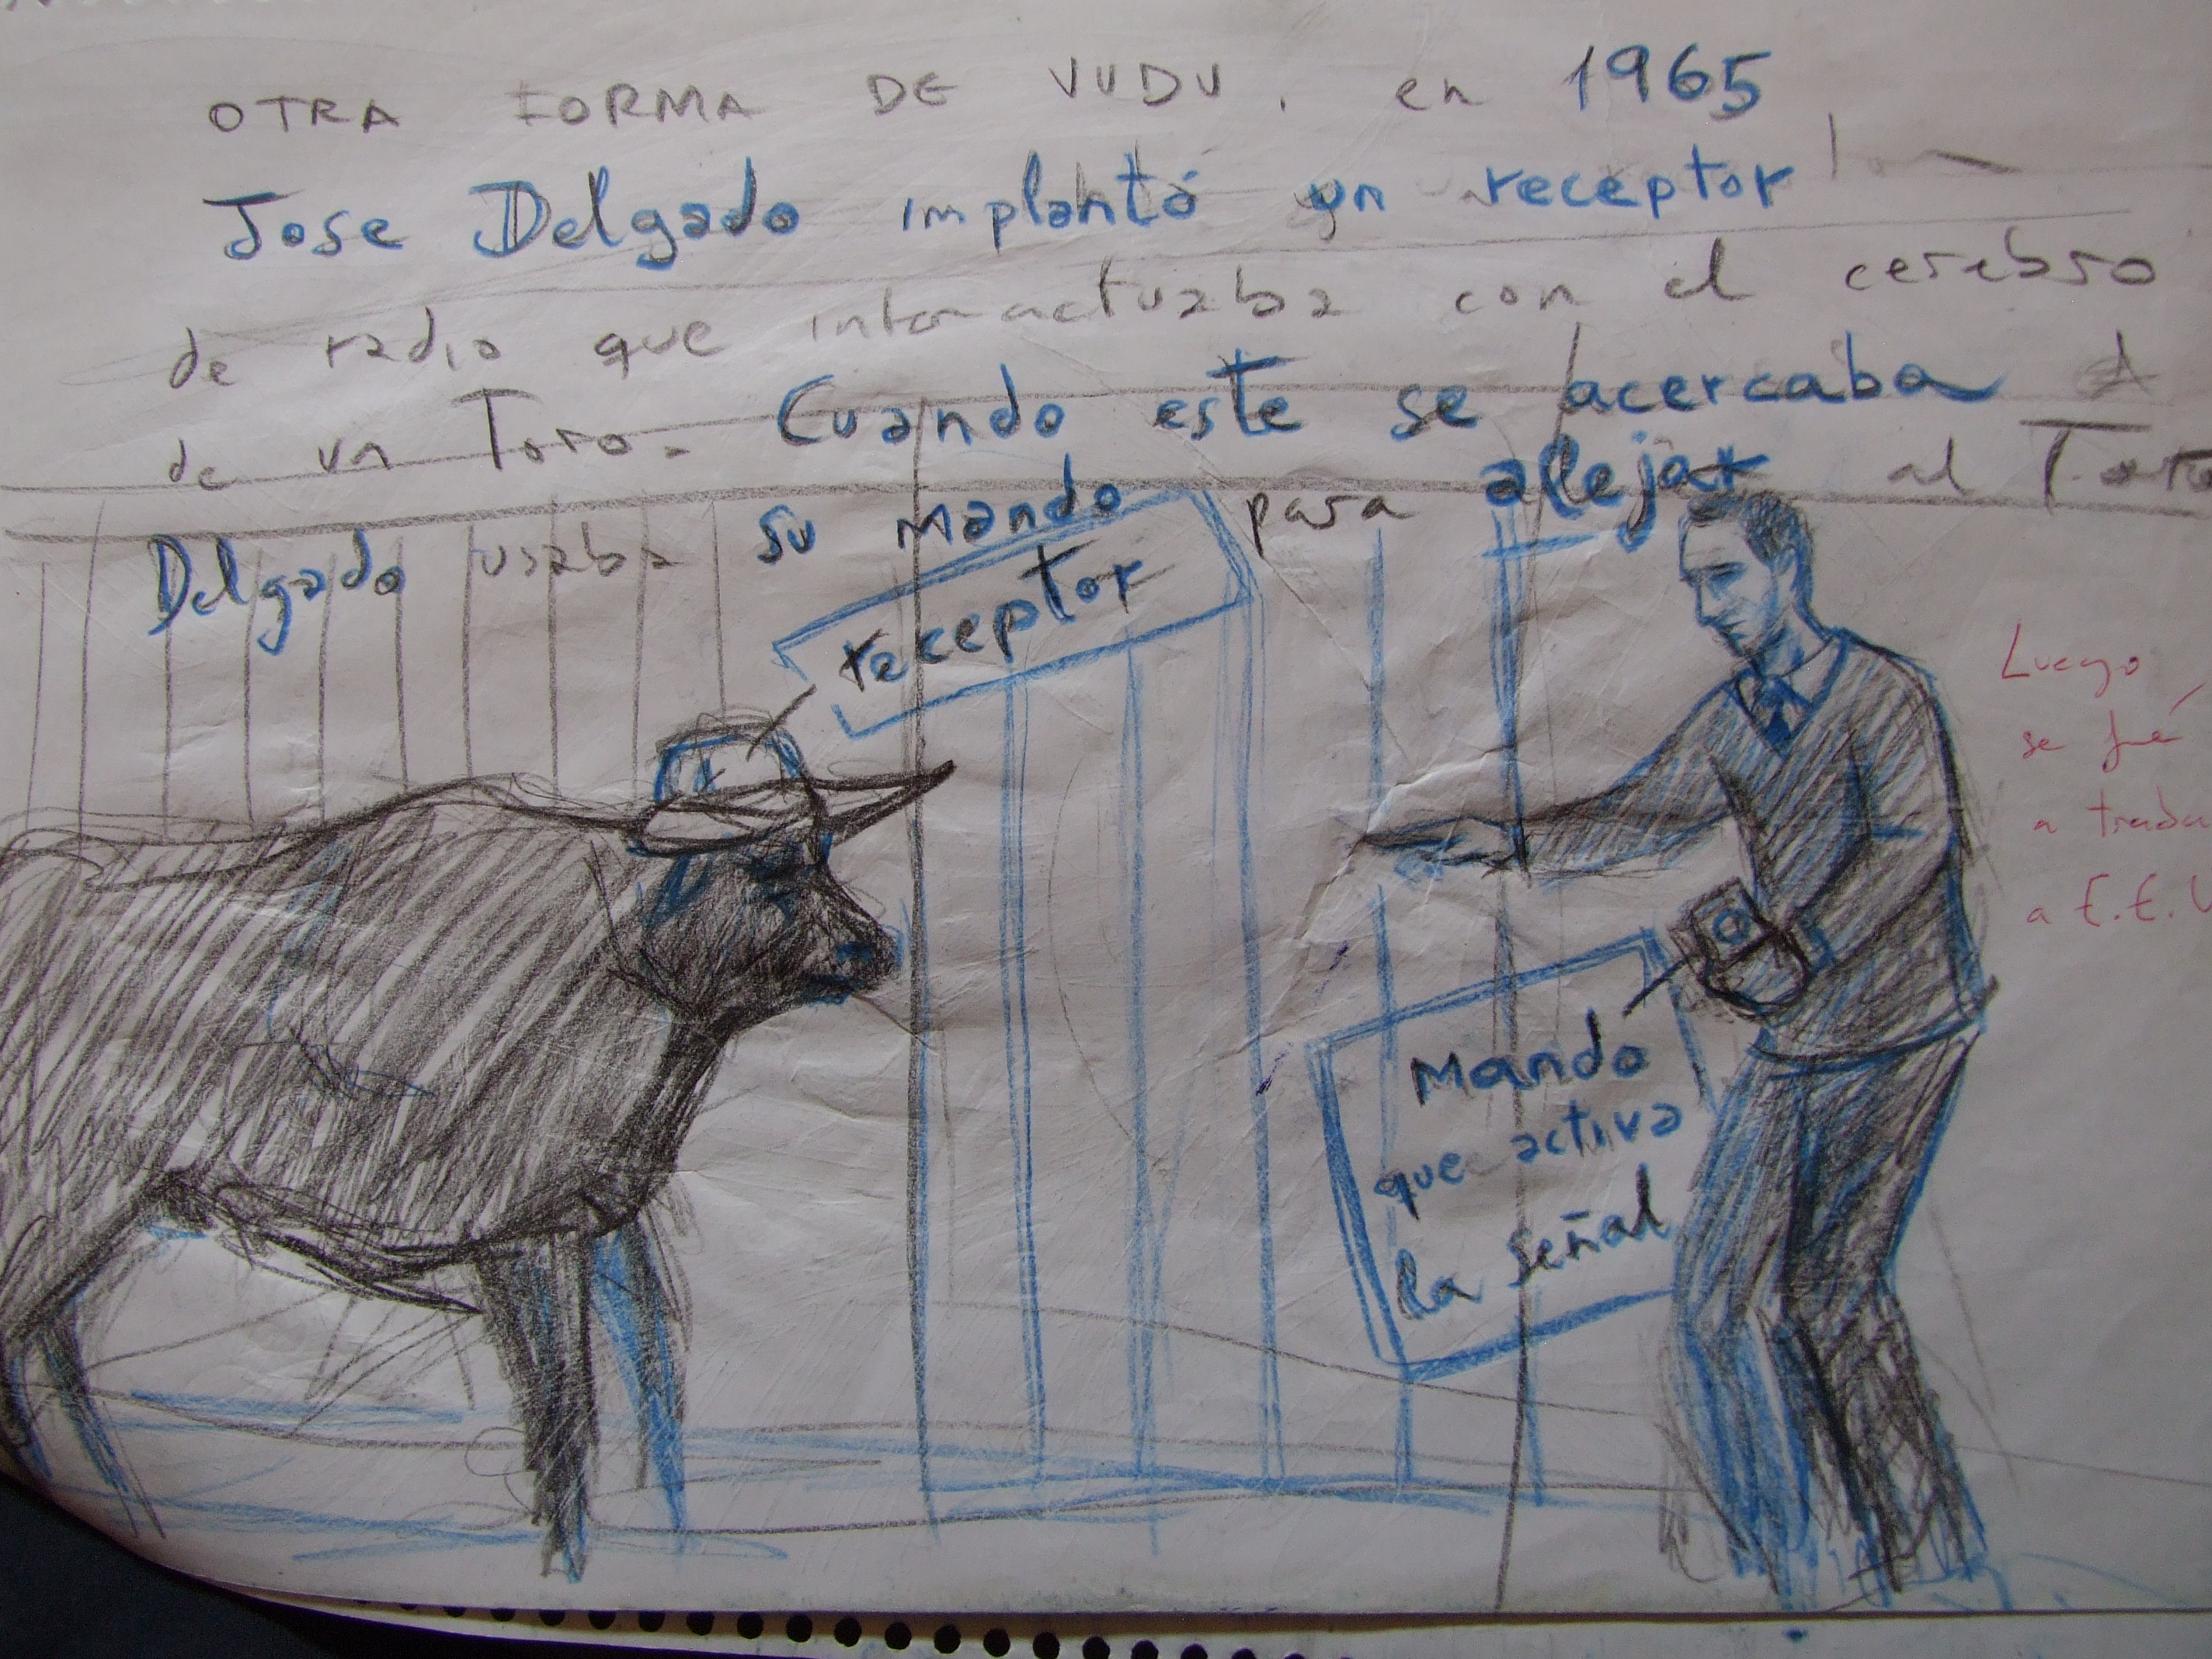 OTRA FORMA DE VUDU. en 1965
Jose Delgado implantó un receptor
de radio que interactuaba con el cerebro
de un Toro. Cuando este se acercaba A
Delgado usaba su mando para allejar al Toro
receptor
Mando
que activa
la señal
Luego
se fué
a
a E.E.U